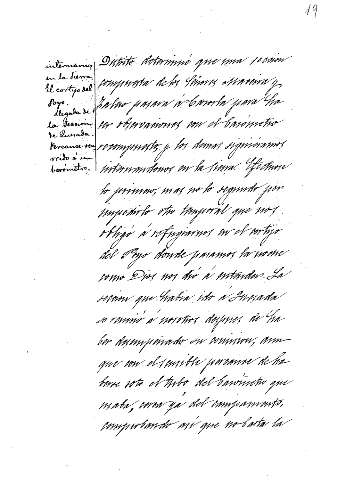 19
internarnos
en la Sierra
El cortijo del
Poyo.
Llegada de
la Sección
de Quesada.
Percance ocu
rrido á un
barómetro.
Distrito determinó que una seccion
compuesta de los Señores y
pasara a Cazorla para ha
cer observaciones con el barómetro
recompuesto, y los demas siguieramos
internandonos en la Sierra. Efectuose
lo primero, mas no lo segundo por
impedirlo otro temporal que nos
obligó á refugiarnos en el cortijo
del Poyo donde pasamos la noche
como Dios nos dió á entender. La
seccion que habia ido á Quesada
se reunió á nosotros despues de ha
ber desempeñado su comision, aun
que con el sensible percance de ha
berse roto el tubo del barómetro que
usaba, cerca ya del campamento,
comprobando asi que no basta la